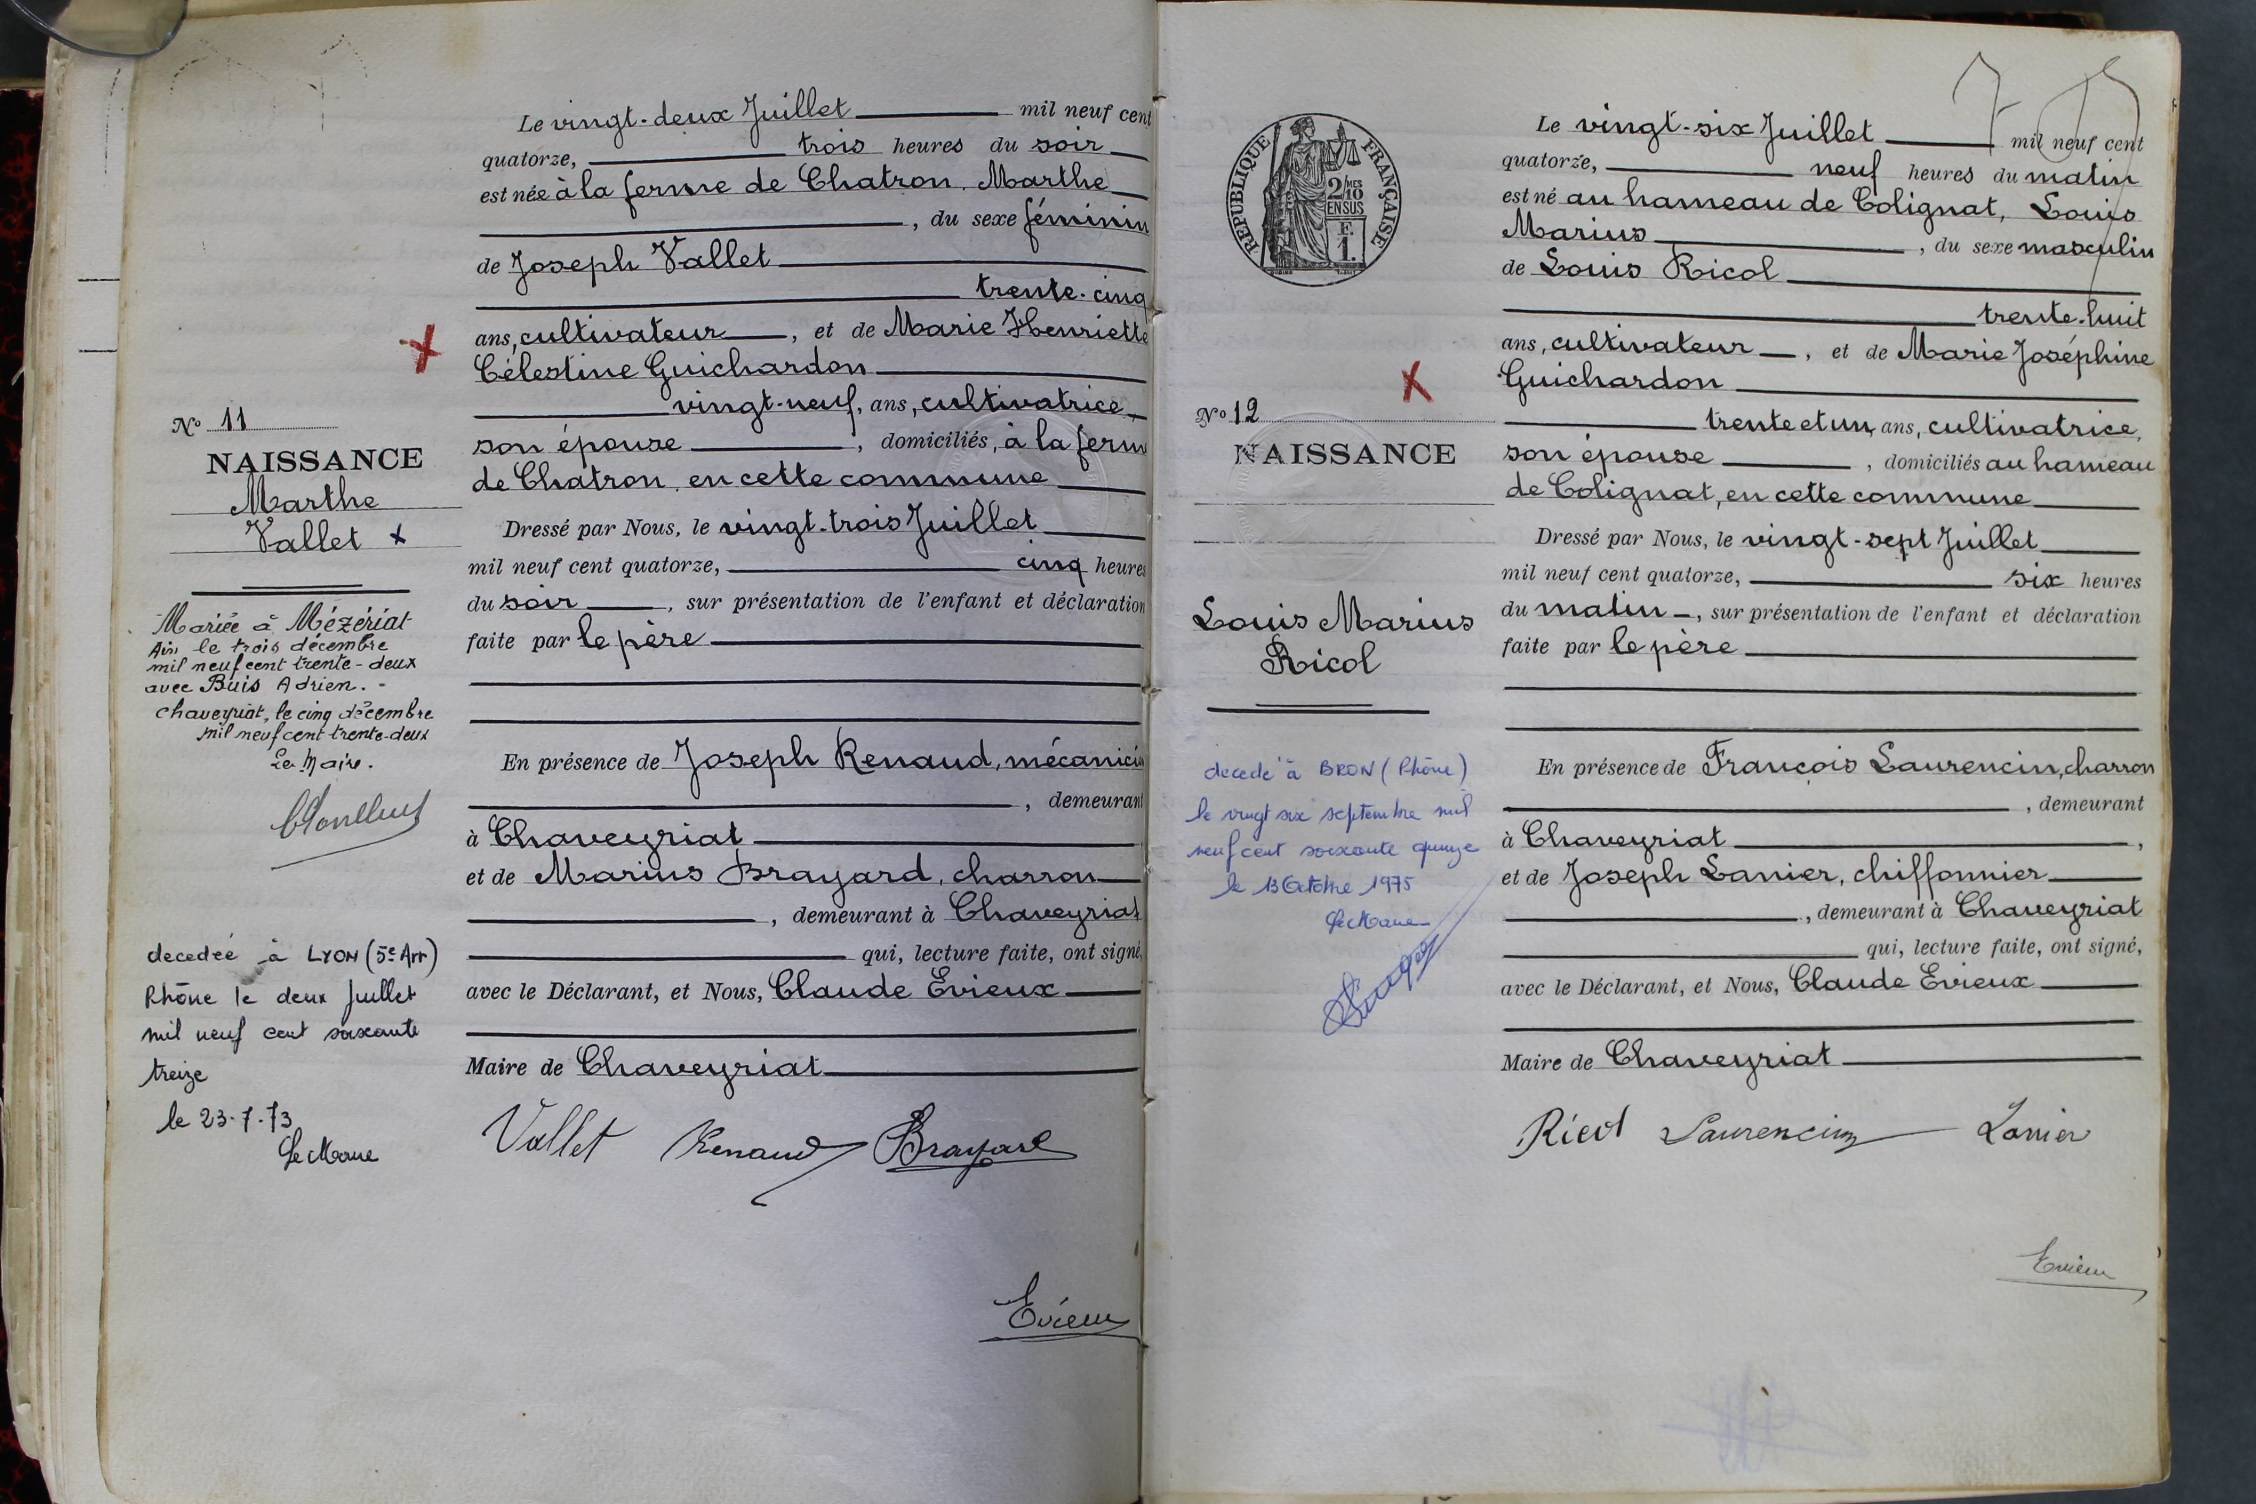 Le vingt-deux Juillet mil neuf cent
quatorze, trois heures du soir
est née à la ferme de Chatron, Marthe
, du sexe féminin
de Joseph Vallet
trente-cinq
ans, cultivateur, et de Marie Henriette
Célestine Guichardon
vingt-neuf, ans, cultivatrice,
son épouse, domiciliés, à la ferm
de Chatron, en cette commune
Dressé par Nous, le vingt-trois Juillet
mil neuf cent quatorze, cinq heures
du soir, sur présentation de l'enfant et déclaration
faite par le père
En présence de Joseph Renaud, mécanicin
, demeurant
à Chaveyriat
et de Marius Brayard, charron
, demeurant à Chaveyriat
qui, lecture faite, ont signé,
avec le Déclarant, et Nous, Claude Evieux
Maire de Chaveyriat
Vallet Renaud Brayard
Evieux
No 11
NAISSANCE
Marthe
Vallet x
Mariée à Mézériat
Ain le trois décembre
mil neuf cent trente-deux
avec Buis Adrien. -
Chaveyriat, le cinq décembre
mil neuf cent trente-deux
Le Maire.
decedée à LYON (5e Arr)
Rhône le deux Juillet
mil neuf cent soixante
treize
le 23-7-73
Le Maire
RÉPUBLIQUE FRANÇAISE
2/MES
10
EN SUS
F.
1.
Le vingt-six Juillet mil neuf cent
quatorze, neuf heures du matin
est né au hameau de Colignat, Louis
Marius, du sexe masculin
de Louis Ricol
trente-huit
ans, cultivateur, et de Marie Joséphine
Guichardon
trente et un, ans, cultivatrice,
son épouse, domiciliés au hameau
de Colignat, en cette commune
Dressé par Nous, le vingt-sept Juillet
mil neuf cent quatorze, six heures
du matin, sur présentation de l'enfant et déclaration
faite par le père
En présence de François Laurencin, charron
, demeurant
à Chaveyriat,
et de Joseph Lanier, chiffonnier
, demeurant à Chaveyriat
qui, lecture faite, ont signé,
avec le Déclarant, et Nous, Claude Evieux
Maire de Chaveyriat
Ricol Laurencin Lanier
Evieux
No 12
NAISSANCE
Louis Marius
Ricol
decede à BRON (Rhône)
le vingt six septembre mil
neuf cent soixante quinze
le 13 Octobre 1975
Le Maire